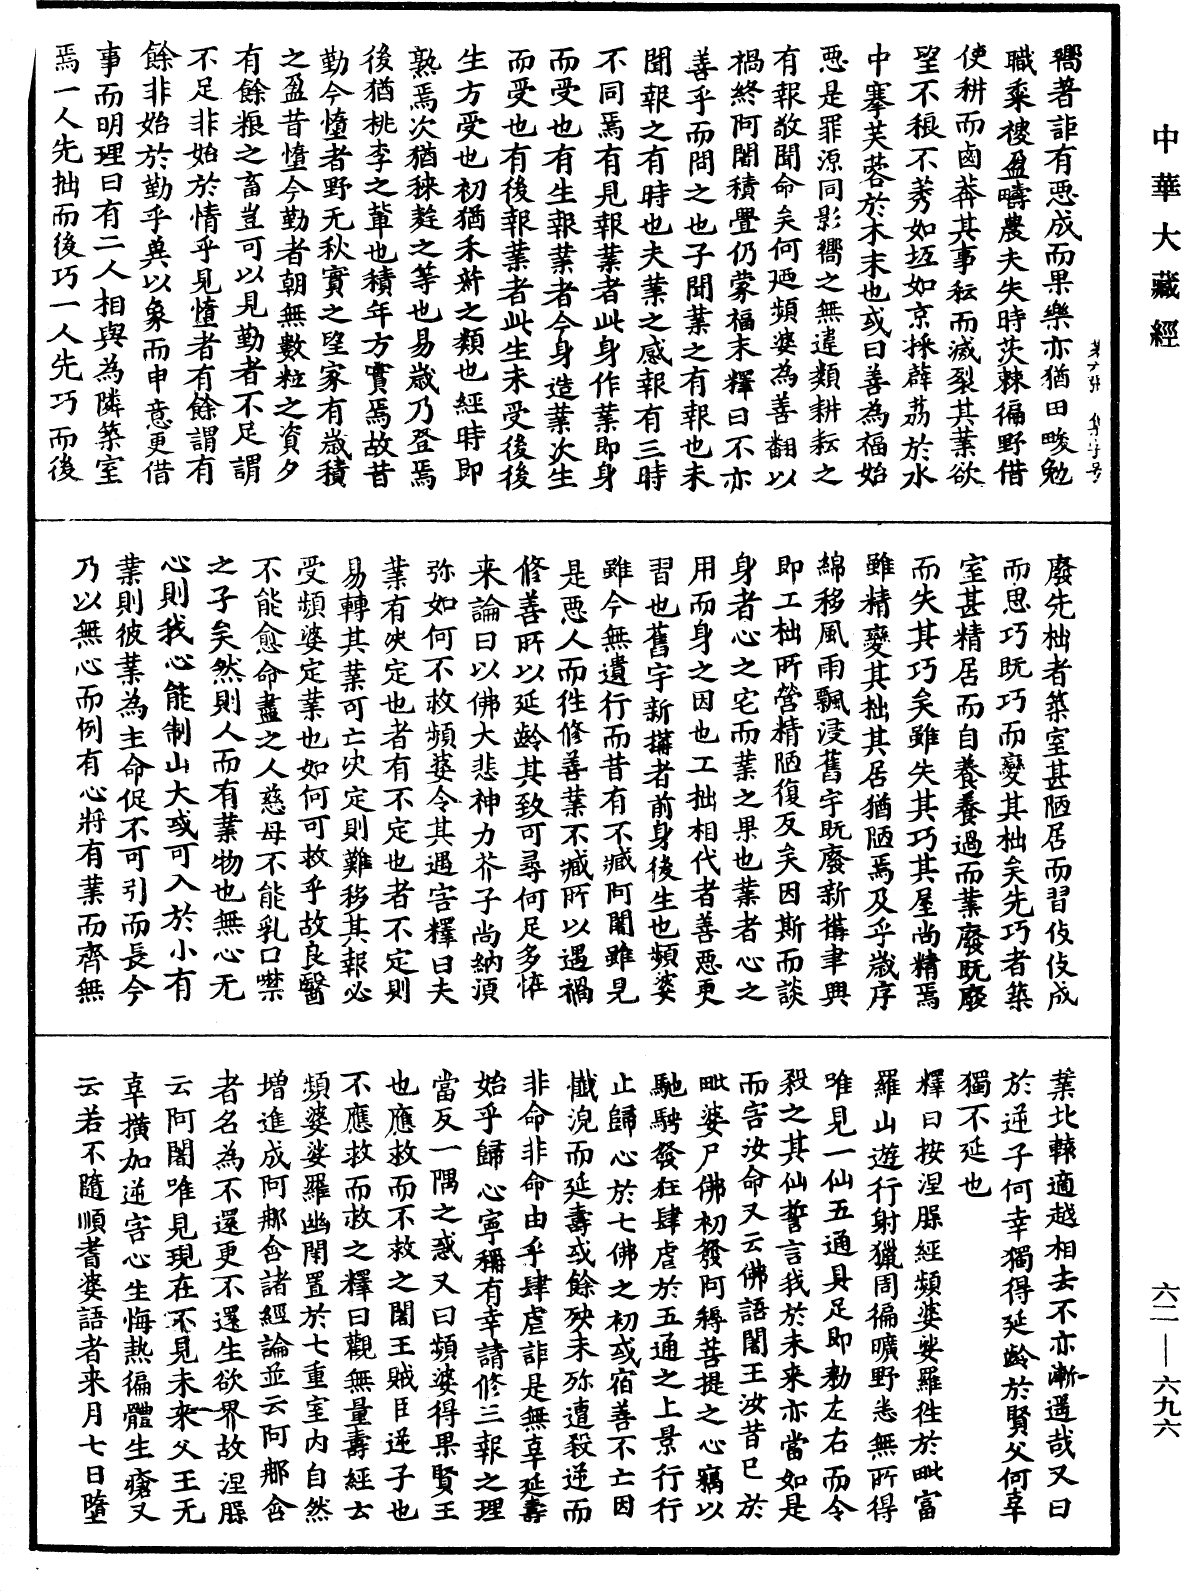 中華大藏經
嚮著詎有惡成而果樂亦猶田畯勉
職桼稷盈疇農夫失時茨棘徧野借
使耕而鹵莽其事耘而滅裂其業欲
望不稂不莠如坻如京採薜荔於水
中搴芙蓉於木末也或曰善為福始
惡是罪源同影嚮之無違類耕耘之
有報敬聞命矣何廼頻婆為善翻以
禍終阿闍積舋仍蒙福末釋曰不亦
善乎而問之也子聞業之有報也未
聞報之有時也夫業之感報有三時
不同焉有見報業者此身作業即身
而受也有生報業者今身造業次生
而受也有後報業者此生未受後後
生方受也初猶禾䅌之類也經時即
熟焉次猶䅘麰之等也易歲乃登焉
後猶桃李之軰也積年方實焉故昔
勤今憻者野无秋實之望家有歲積
之盈昔憻今勤者朝無數粒之資夕
有餘粮之畜豈可以見勤者不足謂
不足非始於情乎見憻者有餘謂有
餘非始於勤乎奠以象而申意更借
事而明理曰有二人相與為隣築室
焉一人先拙而後巧一人先巧而後
廢先拙者築室甚陋居而習伎伎成
而思巧既巧而變其拙矣先巧者築
室甚精居而自養養過而業廢既廢
而失其巧矣雖失其巧其屋尚精焉
雖精變其拙其居猶陋焉及乎歲序
綿移風雨飄浸舊宇既廢新搆聿興
即工柮所營精陋復反矣因斯而談
身者心之宅而業之果也業者心之
用而身之因也工拙相代者善惡更
習也舊宇新搆者前身後生也頻婆
雖今無遺行而昔有不臧阿闍雖見
是惡人而徃修善業不臧所以遇禍
修善所以延齡其致可尋何足多怪
来論曰以佛大悲神力芥子尚納湏
弥如何不救頻婆令其遇害釋曰夫
業有决定也者有不定也者不定則
易轉其業可亡决定則難移其報必
受頻婆定業也如何可救乎故良醫
不能愈命盡之人慈母不能乳口噤
之子矣然則人而有業物也無心无
心則我心能制山大或可入於小有
業則彼業為主命促不可引而長今
乃以無心而例有心將有業而齊無
業北轅適越相去不亦漸遥哉又曰
於逆子何幸獨得延齡於賢父何辜
獨不延也
釋曰按涅槃經頻婆娑羅徃於毗富
羅山遊行射獵周徧曠野悉無所得
唯見一仙五通具足即勑左右而令
殺之其仙誓言我於未来亦當如是
而害汝命又云佛語闍王汝昔已於
毗婆尸佛初發阿耨菩提之心竊以
馳騁發狂肆虐於五通之上景行行
止歸心於七佛之初或宿善不亡因
懺洗而延壽或餘殃未殄遭殺逆而
非命非命由乎肆虐詎是無辜延壽
始乎歸心寧稱有幸請修三報之理
當反一隅之惑又曰頻婆得果賢王
也應救而不救之闍王賊臣逆子也
不應救而救之釋曰觀無量壽經云
頻婆娑羅幽閇置於七重室内自然
增進成阿那含諸經論並云阿那含
者名為不還更不還生欲界故涅槃
云阿闍唯見現在不見未來父王无
辜横加逆害心生悔熱徧體生瘡又
云若不隨順耆婆語者来月七日墮
六二—六九六